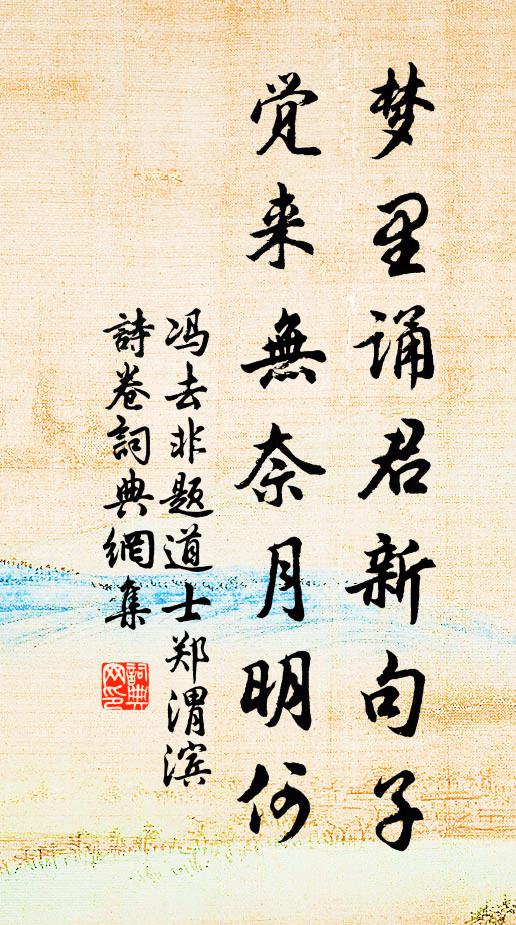 梦里诵君新句子
觉来無奈月明何
冯去非题道士郑渭滨
詩卷詞典網集
詞典
网印